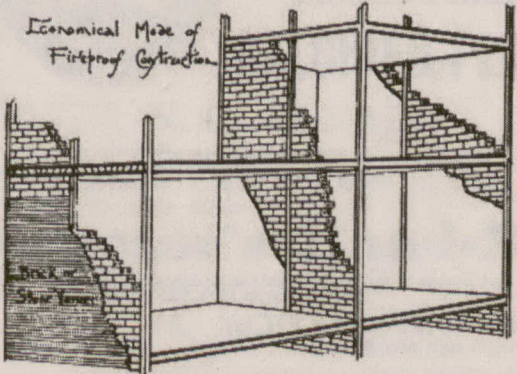 Economical Mode of
Fireproof Construction
Brick or
Stone Veneer